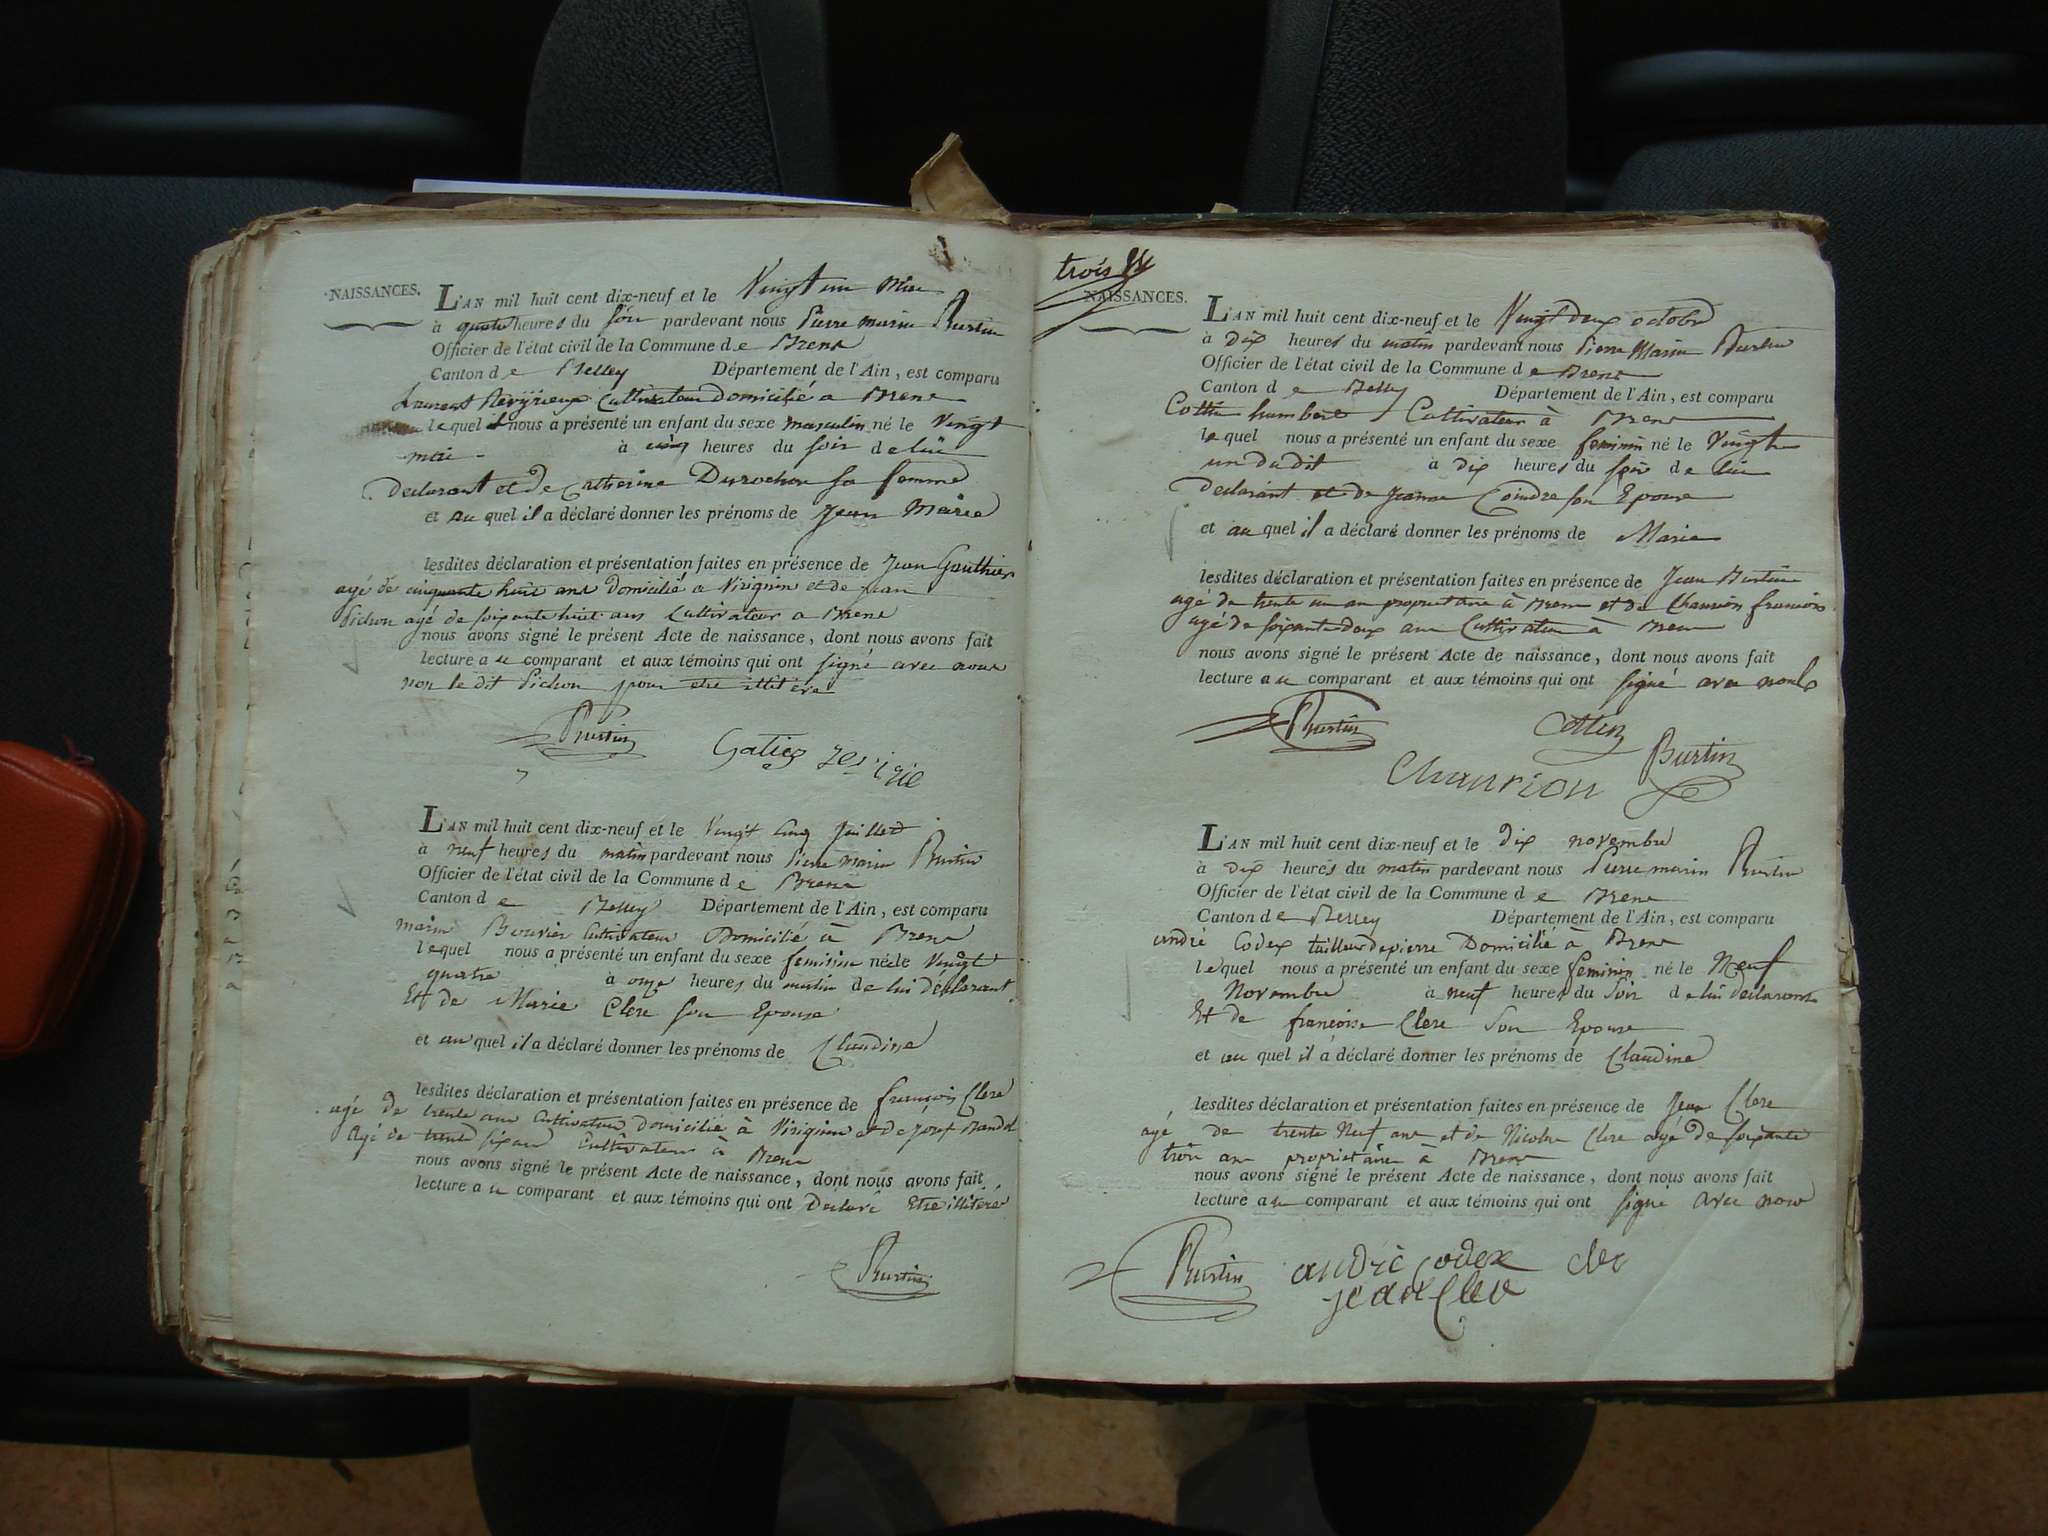 NAISSANCES.
L'AN mil huit cent dix-neuf et le Vingt un Mai
à quatre heures du soir pardevant nous Pierre marin Burtin
Officier de l'état civil de la Commune de Brens
Canton de Belley Département de l'Ain, est comparu
Laurent Cultivateur Domicilié a Brens
lequel il nous a présenté un enfant du sexe masculin né le Vingt
mai à cinq heures du soir de lui
declarant et de Catherine Durochou sa femme
et au quel il a déclaré donner les prénoms de Jean Marie
lesdites déclaration et présentation faites en présence de Jean Gauthier
agé de cinquante huit ans Domicilié a Virignin et de jean
Pichon agé de soixante huit ans Cultivateur a Brens
nous avons signé le présent Acte de naissance, dont nous avons fait
lecture au comparant et aux témoins qui ont signé avec nous
non le dit Pichon pour etre illitéré
Burtin
L'AN mil huit cent dix-neuf et le Vingt Cinq Juillet
à neuf heures du matin pardevant nous Pierre marin Burtin
Officier de l'état civil de la Commune de Brens
Canton de Belley Département de l'Ain, est comparu
marin Bouvier Cultivateur Domicilié à Brens
lequel nous a présenté un enfant du sexe feminin né le Vingt
quatre à onze heures du matin de lui déclarant
Et de Marie Clerc son Epouse
et au quel il a déclaré donner les prénoms de Claudine
lesdites déclaration et présentation faites en présence de françois Clerc
agé de trente ans Cultivateur domicilié à Virignin et de josef
Agé de trente six ans Cultivateur à Brens
nous avons signé le présent Acte de naissance, dont nous avons fait
lecture au comparant et aux témoins qui ont Déclaré Etre illitéré
Burtin
trois
NAISSANCES.
L'AN mil huit cent dix-neuf et le Vingt deux octobre
à dix heures du matin pardevant nous Pierre Marin Burtin
Officier de l'état civil de la Commune de Brens
Canton de Belley Département de l'Ain, est comparu
Cottin humbert Cultivateur à Brens
lequel nous a présenté un enfant du sexe feminin né le Vingt
un dudit à dix heures du soir de lui
declarant et de Jeanne Coindre son Epouse
et au quel il a déclaré donner les prénoms de Marie
lesdites déclaration et présentation faites en présence de Jean Burtin
agé de trente un an proprietaire à Brens et de Chaurion francois
agé de soixante deux ans Cultivateur à Brens
nous avons signé le présent Acte de naissance, dont nous avons fait
lecture au comparant et aux témoins qui ont signé avec nous
Burtin Cottin
Chaurion Burtin
L'AN mil huit cent dix-neuf et le dix novembre
à dix heures du matin pardevant nous Pierre marin Burtin
Officier de l'état civil de la Commune de Brens
Canton de Belley Département de l'Ain, est comparu
andré Codex tailleur de pierre Domicilié à Brens
lequel nous a présenté un enfant du sexe feminin né le Neuf
Novembre à neuf heures du Soir de lui declarant
Et de francoise Clerc Son Epouse
et au quel il a déclaré donner les prénoms de Claudine
lesdites déclaration et présentation faites en présence de Jean Clerc
agé de trente Neuf ans et de Nicolas Clerc agé de soixante
trois ans proprietaire à Brens
nous avons signé le présent Acte de naissance, dont nous avons fait
lecture au comparant et aux témoins qui ont signé avec nous
Burtin andré codex clerc
jean Clerc